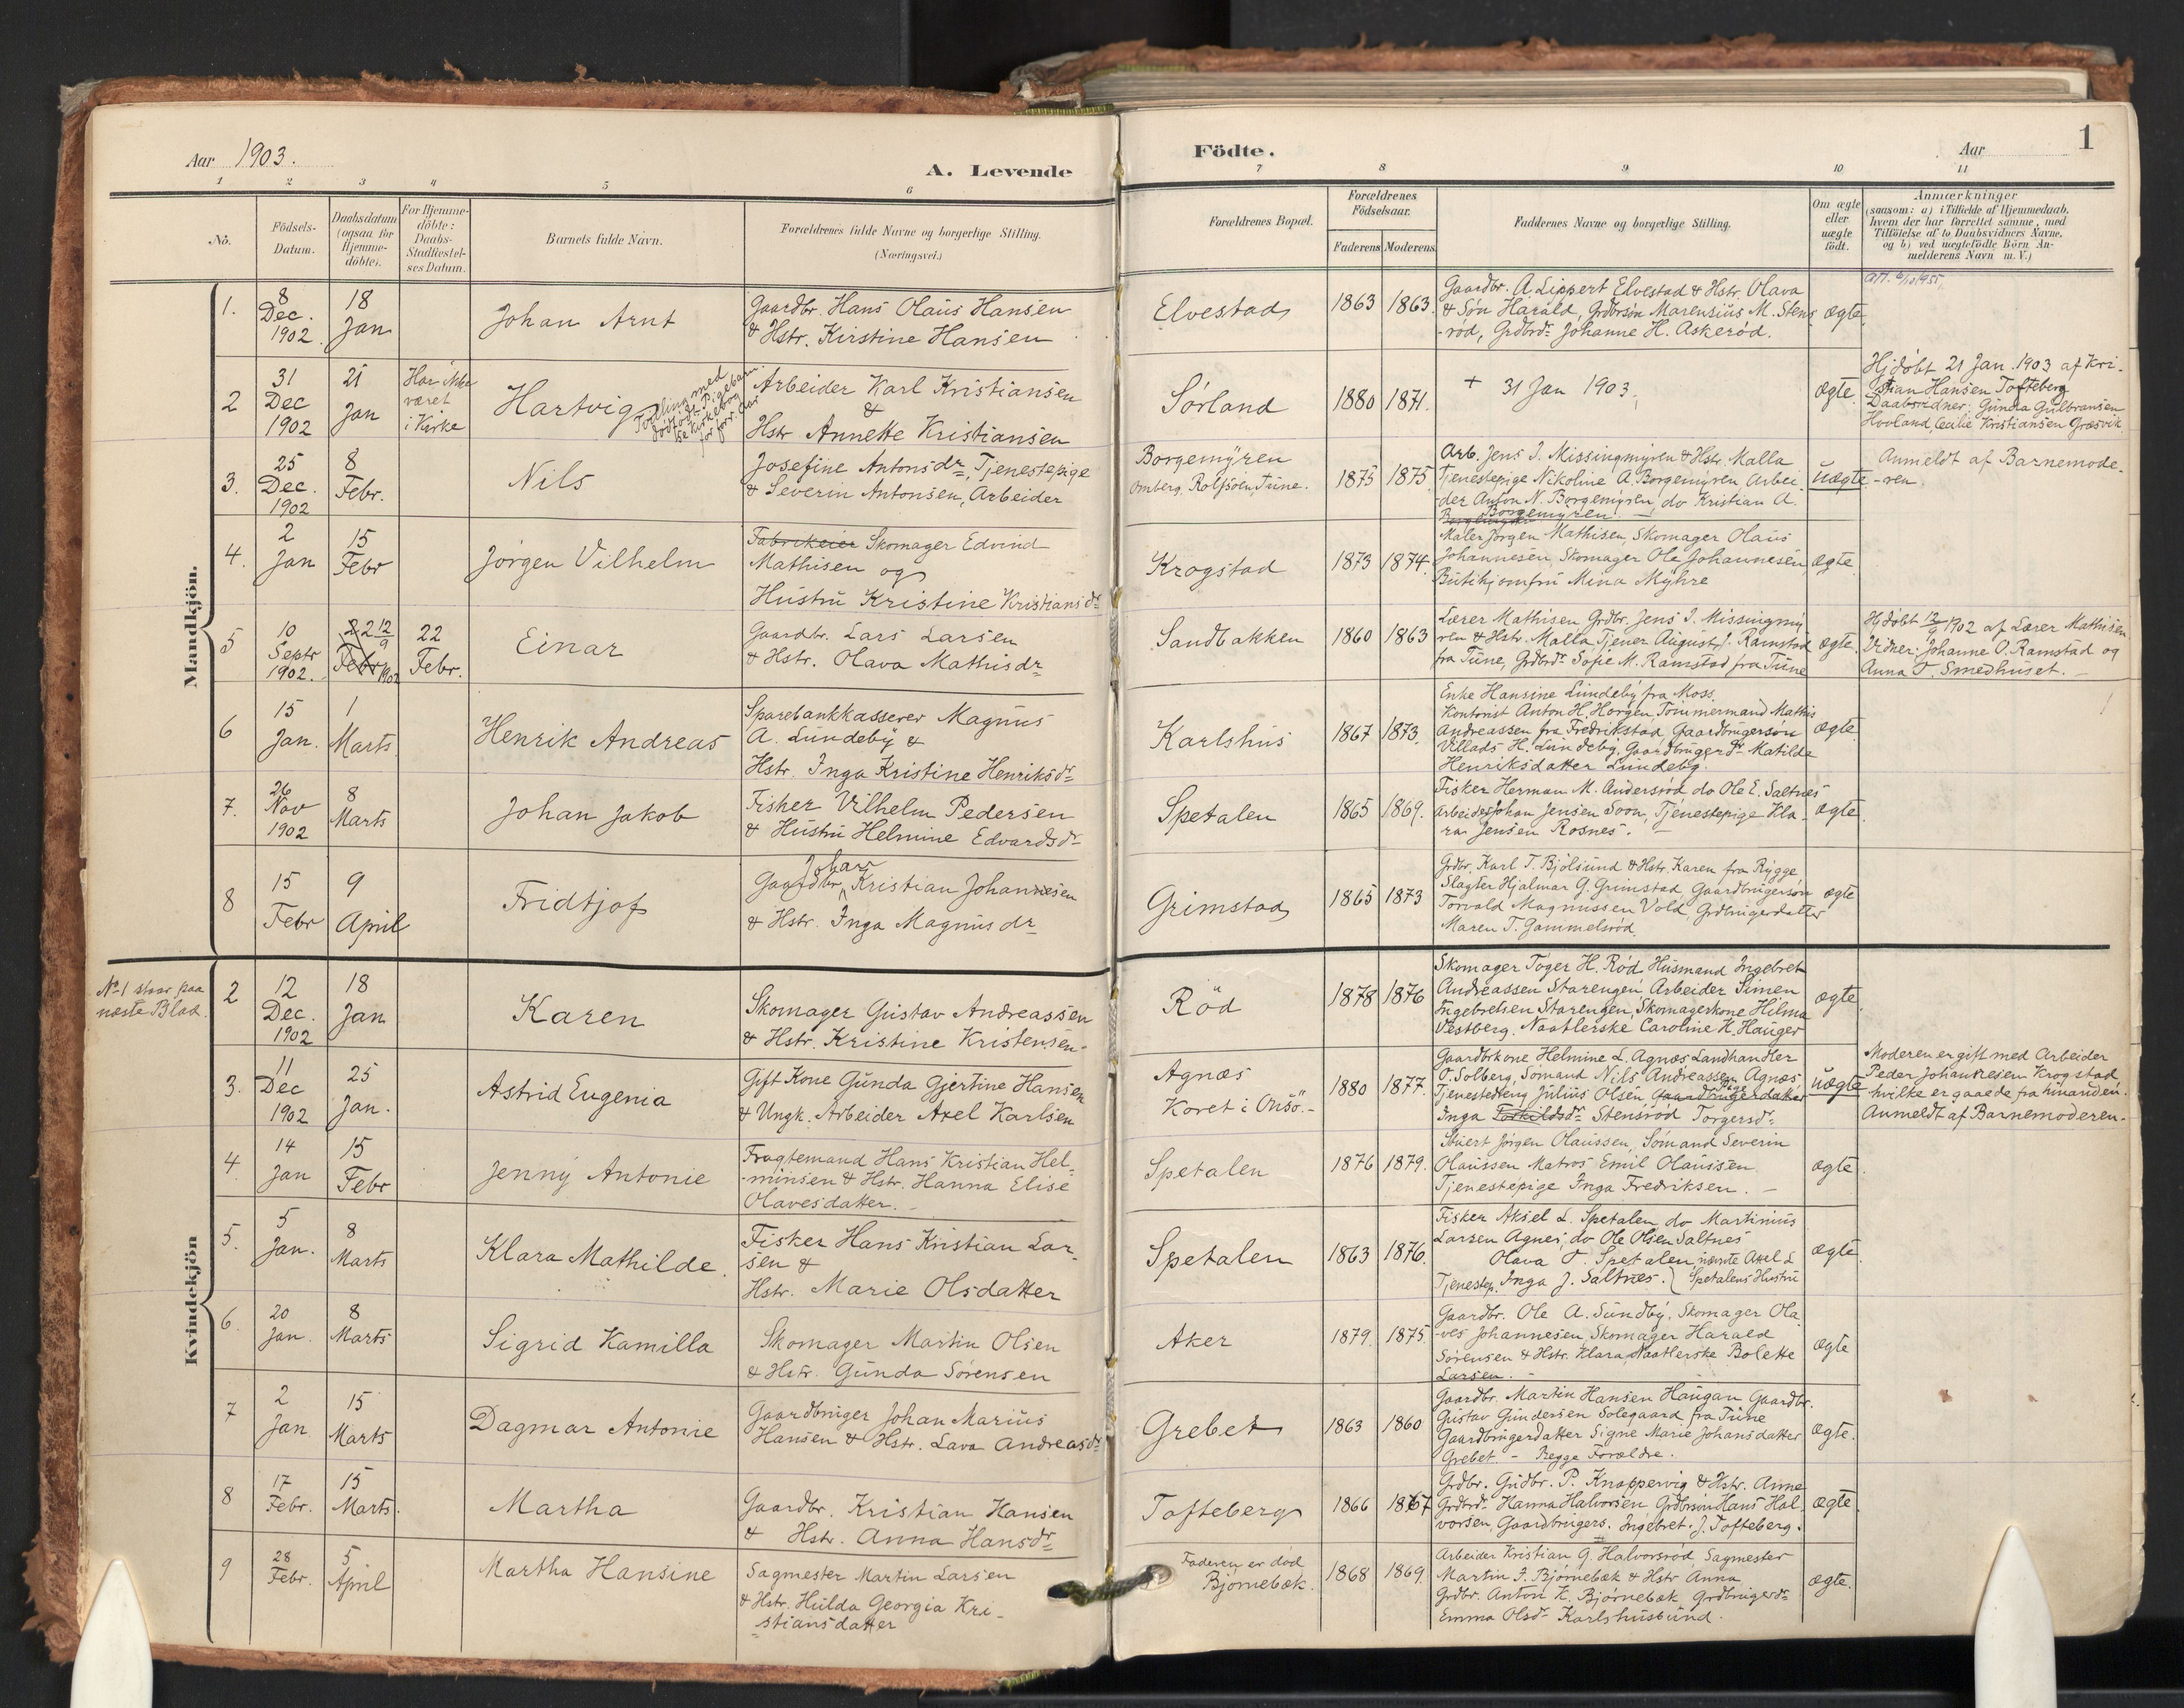 Aar 1903.
A. Levende
Födte.
Aar
1
1 2 3 4 5 6 7 8 9 10 11
No.
Födsels-
Datum.
Daabsdatum
(ogsaa for
Hjemme-
döbte).
For Hjemme-
döbte:
Daabs-
Stadfæstel-
ses Datum.
Barnets fulde Navn.
Forældrenes fulde Navne og borgerlige Stilling.
(Næringsvei.)
Forældrenes Bopæl.
Forældrenes
Födselsaar.
Faderens Moderens
Faddernes Navne og borgerlige Stilling.
Om ægte
eller
uægte
födt.
Anmærkninger
(saasom: a) i Tilfælde af Hjemmedaab,
hvem der har forrettet samme, med
Tilföielse af to Daabsvidners Navne,
og b) ved uægtefödte Börn An-
melderens Navn m. V.)
Mandkjön.
1.
8
Dec.
1902.
18
Jan
Johan Arnt
Gaardbr. Hans Olaus Hansen
& Hstr. Kirstine Hansen
Elvestad
1863 1863.
Gaardbr. A Lippert Elvestad & Hstr. Olava
& Søn Harald, Grdbrsøn Marensius M. Stens
-rød, Grdbrdr. Johanne H. Askerød.
ægte.
2
31
Dec
1902
21
Jan
Har ikke
været
i Kirke
Hartvig
Tvilling med
dødfødt Pigebarn
se Kirkebog
for forr. Aar
Arbeider Karl Kristiansen
&
Hstr Annette Kristiansen
Sørland
1880 1871.
+ 31 Jan 1903.
ægte.
Hjdøbt 21 Jan. 1903 af Kri-
stian Hansen Tofteberg
Daabsvidner: Gunda Gulbransen
Hovland, Cecilie Kristiansen Græsvik
3.
25
Dec.
1902
8
Febr.
Nils
Josefine Antonsdr., Tjenestepige
& Severin Antonsen, Arbeider
Borgemyren
Omberg. Rolfsøen, Tune.
1875 1875
Arb. Jens J. Missingmyren & Hstr. Malla
Tjenestepige Nikoline A. Borgemyren Arbei
-der Anton N. Borgemyren, do Kristian A.
Borgemyren. —
uægte
Anmeldt af Barnemode-
-ren
4.
2
Jan
15
Febr
Jørgen Vilhelm
Fabrikeier Skomager Edvind
Mathisen og
Hustru Kristine Kristiansdr.
Krogstad
1873 1874.
Maler Jørgen Mathisen, Skomager Olaus
Johannesen, Skomager Ole Johannesen,
Butikjomfru Mina Myhre
ægte
5
10
Septr
1902.
22 12/9
Febr 1902
22
Febr.
Einar
Gaardbr. Lars Larsen
& Hstr. Olava Mathisdr
Sandbakken
1860 1863
Lærer Mathisen Grdbr. Jens J. Missingmy
ren & Hstr. Malla Tjener August J. Ramstad
fra Tune, Grdbrdr. Sofie M. Ramstad fra Tune
ægte.
Hjdøbt 12/9 1902 af Lærer Mathisen
Vidner: Johanne O. Ramstad og
Anna T. Smedhuset. —
6
15
Jan.
1
Marts
Henrik Andreas
Sparebankkasserer Magnus
A. Lundeby &
Hstr. Inga Kristine Henriksdr.
Karlshus
1867 1873.
Enke Hansine Lundeby fra Moss,
Kontorist Anton H. Horgen, Tømmermand Mathis
Andreassen fra Fredrikstad, Gaardbrugersøn
Villads H. Lundeby, Gaardbrugerdr Matilde
Henriksdatter Lundeby.
ægte.
7.
26
Nov
1902
8
Marts
Johan Jakob
Fisker Vilhelm Pedersen
& Hustru Helmine Edvardsdr
Spetalen
1865 1869.
Fisker Herman M. Andersrød do Ole E. Saltnes
Arbeider Johan Jensen Soon, Tjenestepige Kla-
ra Jensen Rosnes. —
ægte.
8
15
Febr
9
April
Fridtjof
Johan
Gaardbr. Kristian Johannesen
& Hstr. Inga Magnusdr
Grimstad
1865 1873
Grdbr. Karl T. Bjølsund & Hstr. Karen fra Rygge
Slagter Hjalmar G. Grimstad, Gaardbrugersøn
Torvald Magnussen Vold, Grdbrugerdatter
Maren T. Gammelsrød.
ægte
Kvindekjön
No 1 staar paa
næste Blad.
2
12
Dec.
1902
18
Jan
Karen
Skomager Gustav Andreassen
& Hstr. Kristine Kristensen.
Röd
1878 1876
Skomager Toger H. Rød Husmand Ingebret
Andreassen Starengen Arbeider Simen
Ingebretsen Starengen, Skomagerkone Hilma
Vestberg. Naatlerske Caroline H. Hauger
ægte
3.
11
Dec
1902
25
Jan.
Astrid Eugenia
Gift Kone Gunda Gjertine Hansen
& Ungk. Arbeider Axel Karlsen
Agnæs
Koret i Onsö. -
1880 1877.
Gaardbrkone Helmine L. Agnæs Landhandler
O. Solberg, Sømand Nils Andreassen Agnæs
Tjenestedreng Julius Olsen, Gaardbrugerdatter Pige
Inga Torkildsdr. Stensrød Torgersdr.
uægte
Moderen er gift med Arbeider
Peder Johannesen Krogstad
hvilke er gaaede fra hinanden.
Anmeldt af Barnemoderen.
4.
14
Jan
15
Febr
Jenny Antonie
Fragtemand Hans Kristian Hel-
-minsen & Hstr. Hanna Elise
Olavesdatter. -
Spetalen
1876 1879.
Stuert Jørgen Olaussen, Sømand Severin
Olaussen Matros Emil Olaussen
Tjenestepige Inga Fredriksen. —
ægte
5.
5
Jan.
8
Marts
Klara Mathilde.
Fisker Hans Kristian Lar-
sen &
Hstr. Marie Olsdatter
Spetalen
1863 1876.
Fisker Aksel L. Spetalen do Martinius
Larsen Agnes, do Ole Olsen Saltnes
Olava T. Spetalen nævnte Axel L
Tjenestep. Inga J. Saltnes. } Spetalens Hustru
ægte
6.
20
Jan.
8
Marts
Sigrid Kamilla
Skomager Martin Olsen
& Hstr. Gunda Sørensen
Aker
1879. 1875.
Gaardbr. Ole A. Sundby, Skomager Ola
-ves Johannesen, Skomager Harald
Sørensen & Hstr. Klara, Naatlerske Bolette
Larsen. -
ægte
7
2
Jan.
15
Marts
Dagmar Antonie
Gaardbruger Johan Marius
Hansen & Hstr. Lava Andreasdr
Grebet
1863 1860
Gaardbr. Martin Hansen Haugan Gaardbr.
Gustav Gundersen Solegaard fra Tune
Gaardbrugerdatter Signe Marie Johansdatter
Grebet. - Begge Forældre.
ægte.
8
17
Febr.
15
Marts.
Martha
Gaardbr. Kristian Hansen
& Hstr. Anna Hansdr
Tofteberg
1866 1867
Grdbr. Gudbr. P. Knappervig & Hstr. Anne
Grdbrdr. Hanna Halvorsen Grdbrsøn Hans Hal
vorsen, Gaardbrugers. Ingebret. J. Tofteberg.
ægte.
9
28
Febr.
5
April
Martha Hansine
Sagmester Martin Larsen
& Hstr. Hulda Georgia Kri-
-stiansdatter
Faderen er død
Bjørnebæk.
1868 1869.
Arbeider Kristian G. Halvorsrød, Sagmester
Martin J. Bjørnebæk & Hstr Anna
Grdbr. Anton K. Bjørnebæk Grdbrugerdr
Emma Olsdr. Karlshusbund.
ægte.